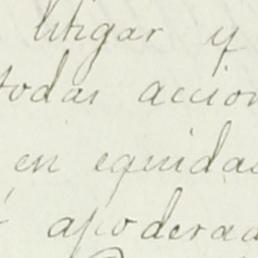 litigar y
todas accion
en equidad
apoderad